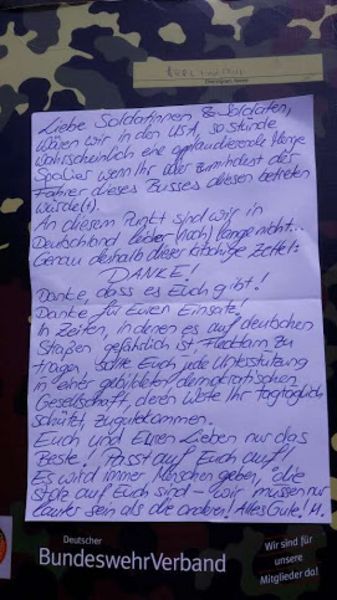 Liebe Soldatinnen & Soldaten,
wären wir in den USA, so stünde
wahrscheinlich eine applaudierende Menge
Spalier wenn Ihr oder zumindest der
Fahrer dieses Busses diesen betreten
würde(t).
An diesem Punkt sind wir in
Deutschland leider (noch) lange nicht...
Genau deshalb dieser kitschige Zettel:
DANKE!
Danke, dass es Euch gibt!
Danke für Euren Einsatz!
In Zeiten, in denen es auf deutschen
Straßen gefährlich ist Flecktarn zu
tragen, sollte Euch jede Unterstützung
in einer gebildeten demokratischen
Gesellschaft, deren Werte Ihr tagtäglich
schützt, zugutekommen.
Euch und Euren Lieben nur das
Beste! Passt auf Euch auf!
Es wird immer Menschen geben, die
stolz auf Euch sind – wir müssen nur
lauter sein als die anderen! Alles Gute! M.
Deutscher
BundeswehrVerband
Wir sind für
unsere
Mitglieder da!